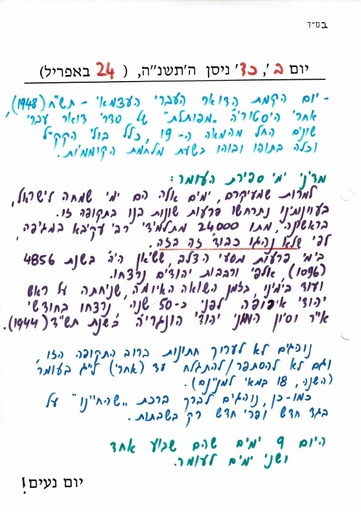 בס״ד
יום ב', כד' ניסן ה'תשנ״ה, ( 24 באפריל)
- יום הקמת הדואר העברי העצמאי - תש״ח (1948),
אחרי היסטוריה "מפותלת" של סדרי דואר עברי,
שונים החל מהמאה ה-19, כלל בולי הקק״ל
וכלה בתוהו ובוהו בשעת מלחמת הקוממיות.
מדיני ימי ספירת העומר:
למרות שמעיקרם, ימים אלה הם ימי שמחה לישראל,
בעוונותינו נתרחשו פרעות שונות בנו בתקופה זו.
בראשונה, מתו 24000 מתלמידי רבי עקיבא במגיפה,
לפי שלא נהגו כבוד זה בזה.
בימי פרעות מסעי הצלב, ששיאן היה בשנת 4856
(1096), אלפי ורבבות יהודים נרצחו.
ועוד בימינו, בזמן השואה האיומה, שניחתה על ראש
יהודי אירופה, לפני כ-50 שנה, נרצחו בחודשי
אייר וסיון המוני יהודי הונגריה בשנת תש״ד (1944).
נוהגים לא לערוך חתונות ברוב התקופה הזו,
וגם לא להסתפר/להתגלח עד (אחרי) ל״ג בעומר
(השנה, 18 במאי למנינם).
כמו-כן, נוהגים לא לברך ברכת "שהחיינו" על
בגד חדש ופרי חדש רק בשבתות.
היום 9 ימים שהם שבוע אחד
ושני ימים לעומר.
יום נעים!